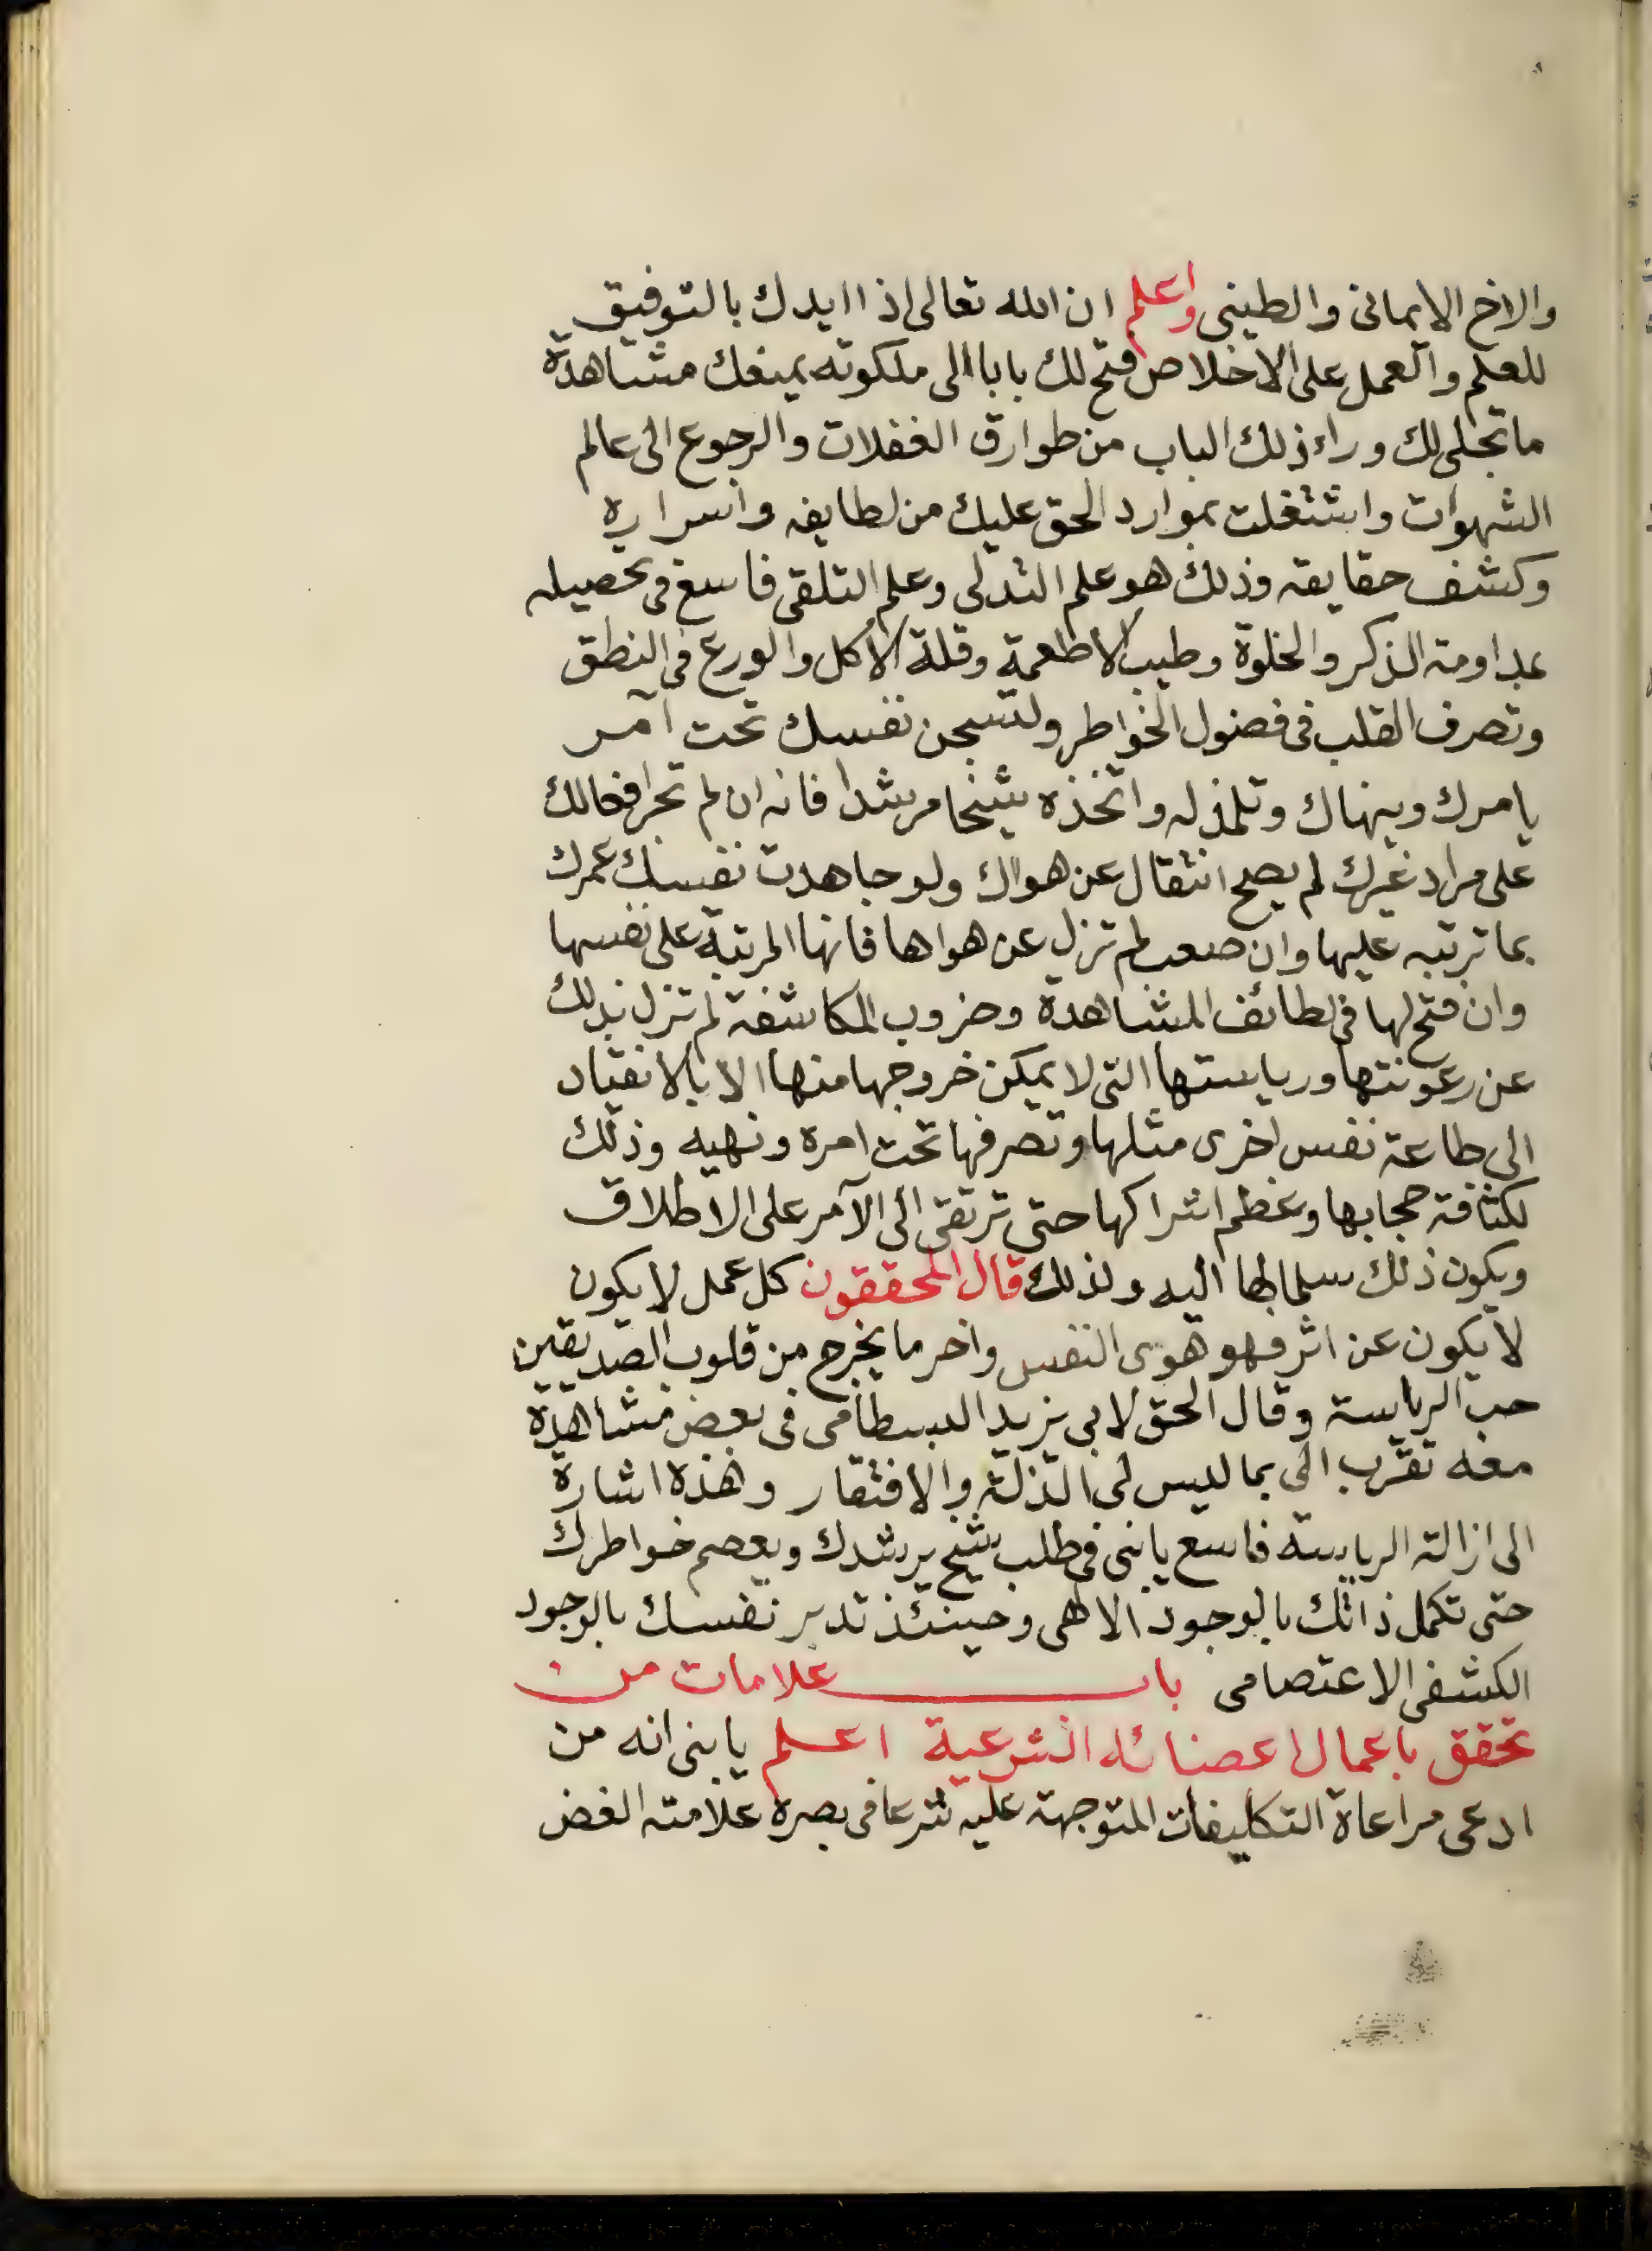 والاخ الايمانى والطينى واعلم ان الله تعالى اذا ايدك بالتوفيق
للعلم والعمل على الاخلاص فتح لك بابا الى ملكوته يمنعك مشاهدة
ما تجلى لك وراء ذلك الباب من طوارق الغفلات والرجوع الى عالم
الشهوات واشتغلت بموارد الحق عليك من لطايفه واسراره
وكشف حقايقه وذلك هو علم التدلى وعلم التلقى فاسع فى تحصيله
بمداومة الذكر والخلوة وطيب الاطعمة وقلة الاكل والورع فى النطق
وتصرف القلب فى فضول الخواطر ولتسجن نفسك تحت آمر
يامرك وينهاك وتلمذ له واتخذه شيخا مرشدا فانه ان لم تجر افعالك
على مراد غيرك لم يصح انتقال عن هواك ولو جاهدت نفسك عمرك
بما ترتبه عليها وان صعب لم تزل عن هواها فانها المرتبة على نفسها
وان فتح لها فى لطائف المشاهدة وضروب المكاشفة لم تزل بذلك
عن رعونتها ورياستها التى لا يمكن خروجها منها الا بالانقياد
الى طاعة نفس اخرى مثلها وتصرفها تحت امره ونهيه وذلك
لكثافة حجابها وعظم اشراكها حتى ترتقى الى الآمر على الاطلاق
ويكون ذلك سلما لها اليه ولذلك قال المحققون كل عمل لا يكون
لا يكون عن اثر فهو هوى النفس واخر ما يخرج من قلوب الصديقين
حب الرياسة وقال الحق لابى يزيد البسطامى فى بعض مشاهدة
معه تقرب الى بما ليس لى الذلة والافتقار وهذه اشارة
الى ازالة الرياسة فاسع يا بنى فى طلب شيخ يرشدك ويعصم خواطرك
حتى تكمل ذاتك بالوجود الالاهى وحينئذ تدبر نفسك بالوجود
الكشفى الاعتصامى باب علامات من
تحقق باعمال اعضائه الشرعية اعلم يا بنى انه من
ادعى مراعاة التكليفات المتوجهة عليه شرعا فى بصره علامته الغض